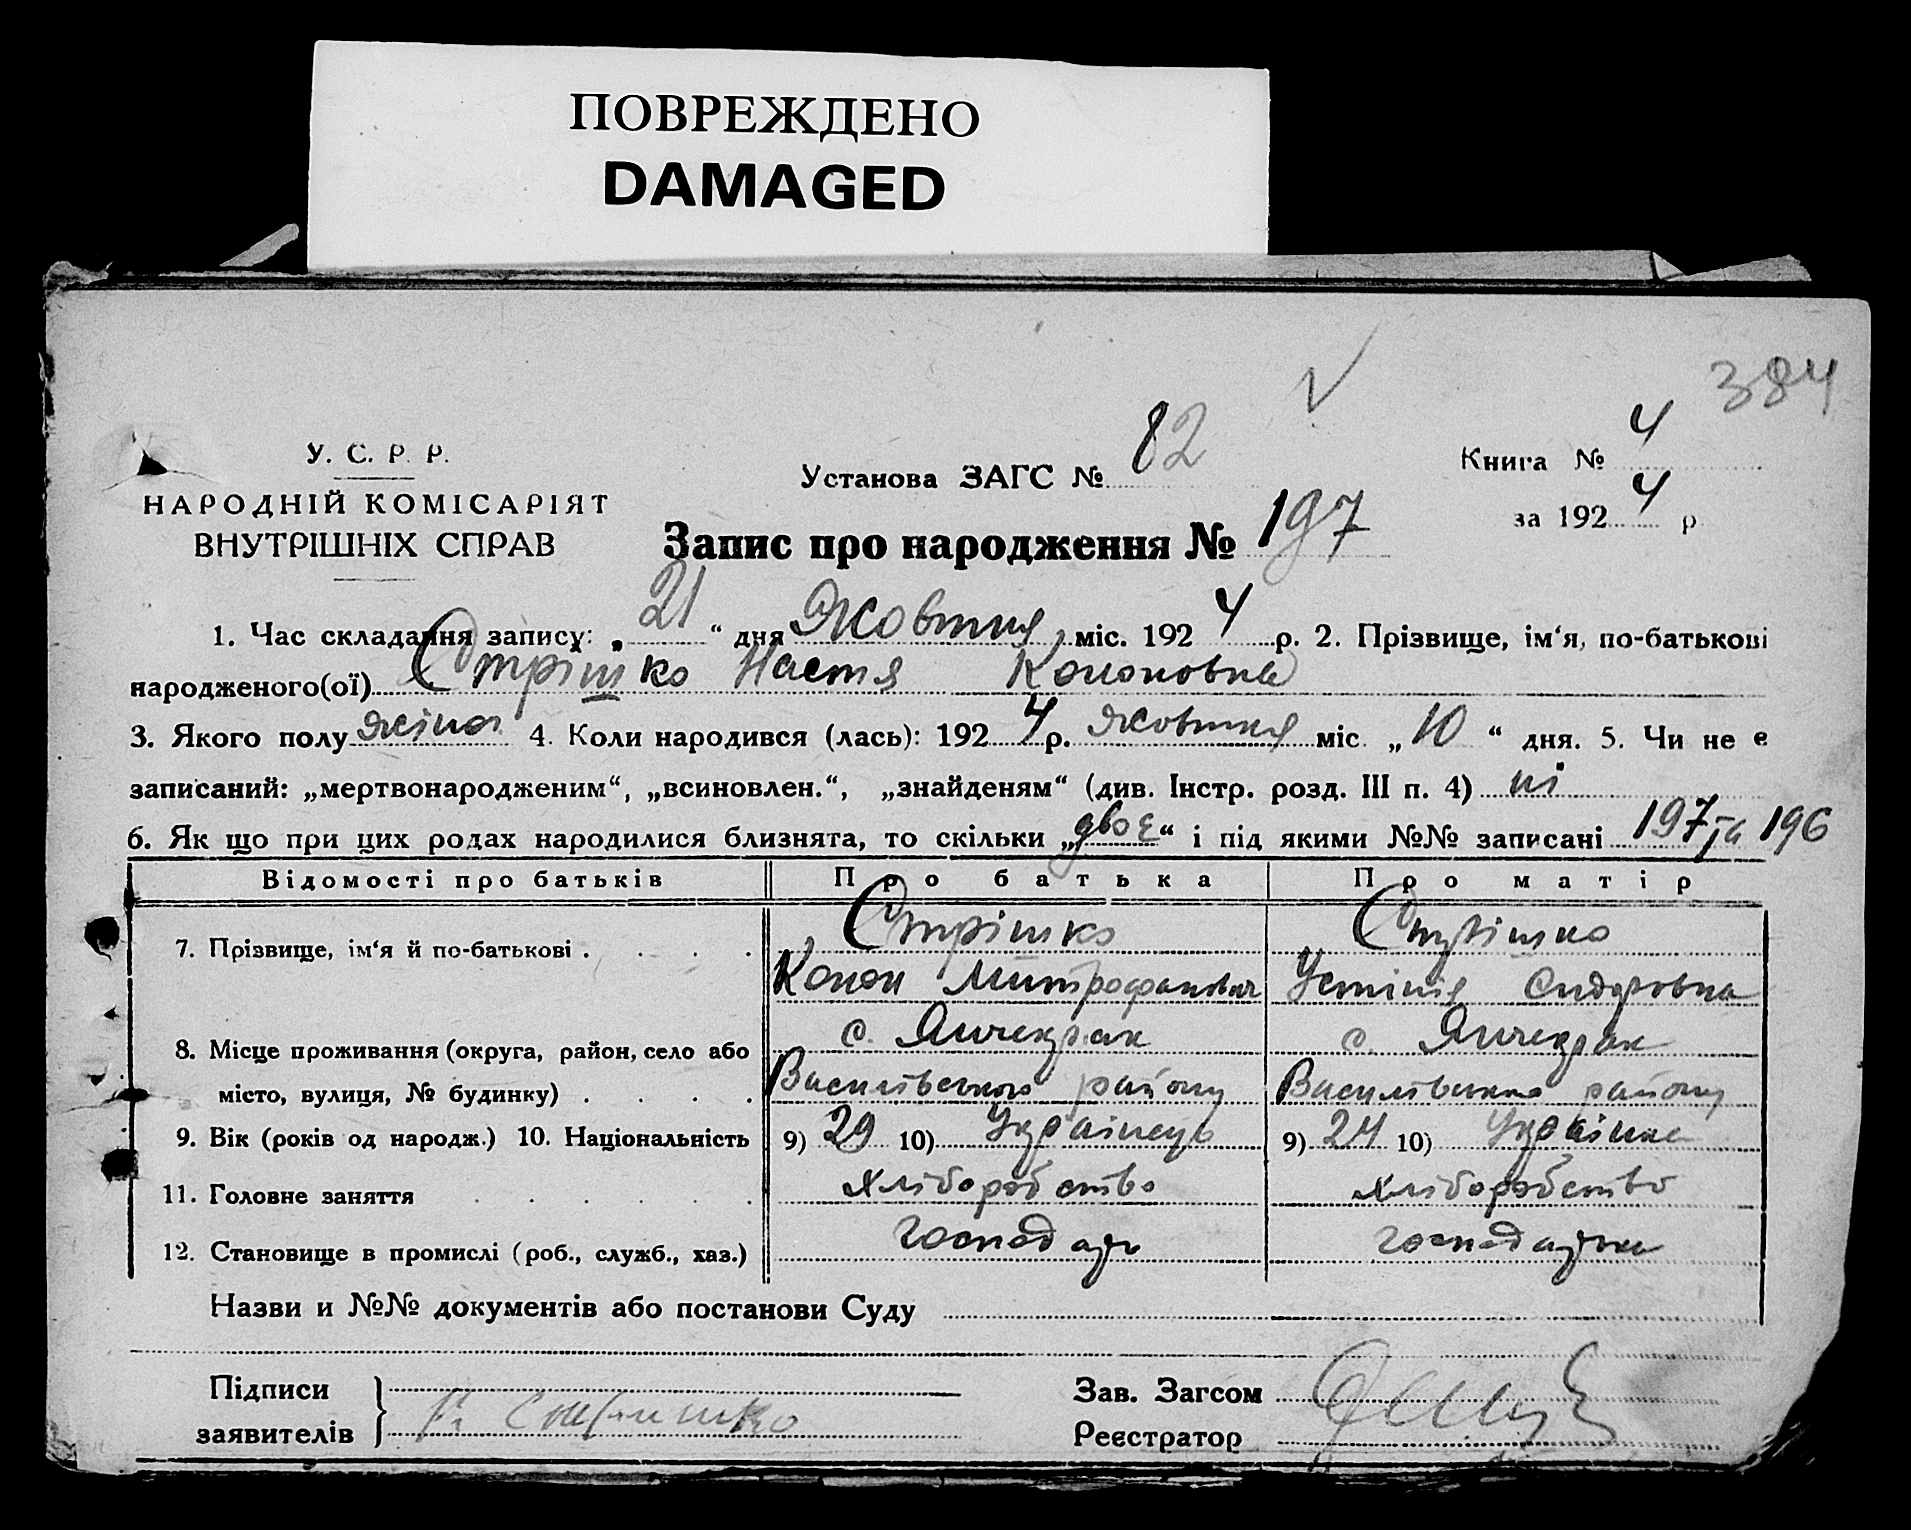 ПОВРЕЖДЕНО
DAMAGED
384
У. С. Р. Р.
НАРОДНІЙ КОМІСАРІЯТ
ВНУТРІШНІХ СПРАВ
Установа ЗАГС № 82
Книга № 4
за 1924 р
Запис про народження № 197
1. Час складання запису: „21“ дня Жовтня міс. 1924 р. 2. Прізвище, ім‘я, по-батькові
народженого(ої) Стрішко Настя Кононовна
3. Якого полу жіноч. 4. Коли народився (лась): 1924 р. жовтня міс. „10“ дня. 5. Чи не є
записаний: „мертвонародженим“, „всиновлен.“, „знайденям“ (див. Інстр. розд. III п. 4) ні
6. Як що при цих родах народилися близнята, то скільки „двоє“ і під якими №№ записані 197 та 196
Відомості про батьків Про батька Про матір
7. Прізвище, ім‘я й по-батькові . . . . Стрішко Стрішко
Конон Митрофанович Устіня Сидоровна
8. Місце проживання (округа, район, село або с. Янчекрак с. Янчекрак
місто, вулиця, № будинку) . . . . Василівського району Василівського району
9. Вік (років од народж.) 10. Національність 9) 29 10) Українець 9) 24 10) Українка
11. Головне заняття . . . . . хліборобство хліборобство
12. Становище в промислі (роб., служб., хаз.) господарь господарька
Назви и №№ документів або постанови Суду
Підписи
заявителів
К. Стришко
Зав. Загсом
Реєстратор